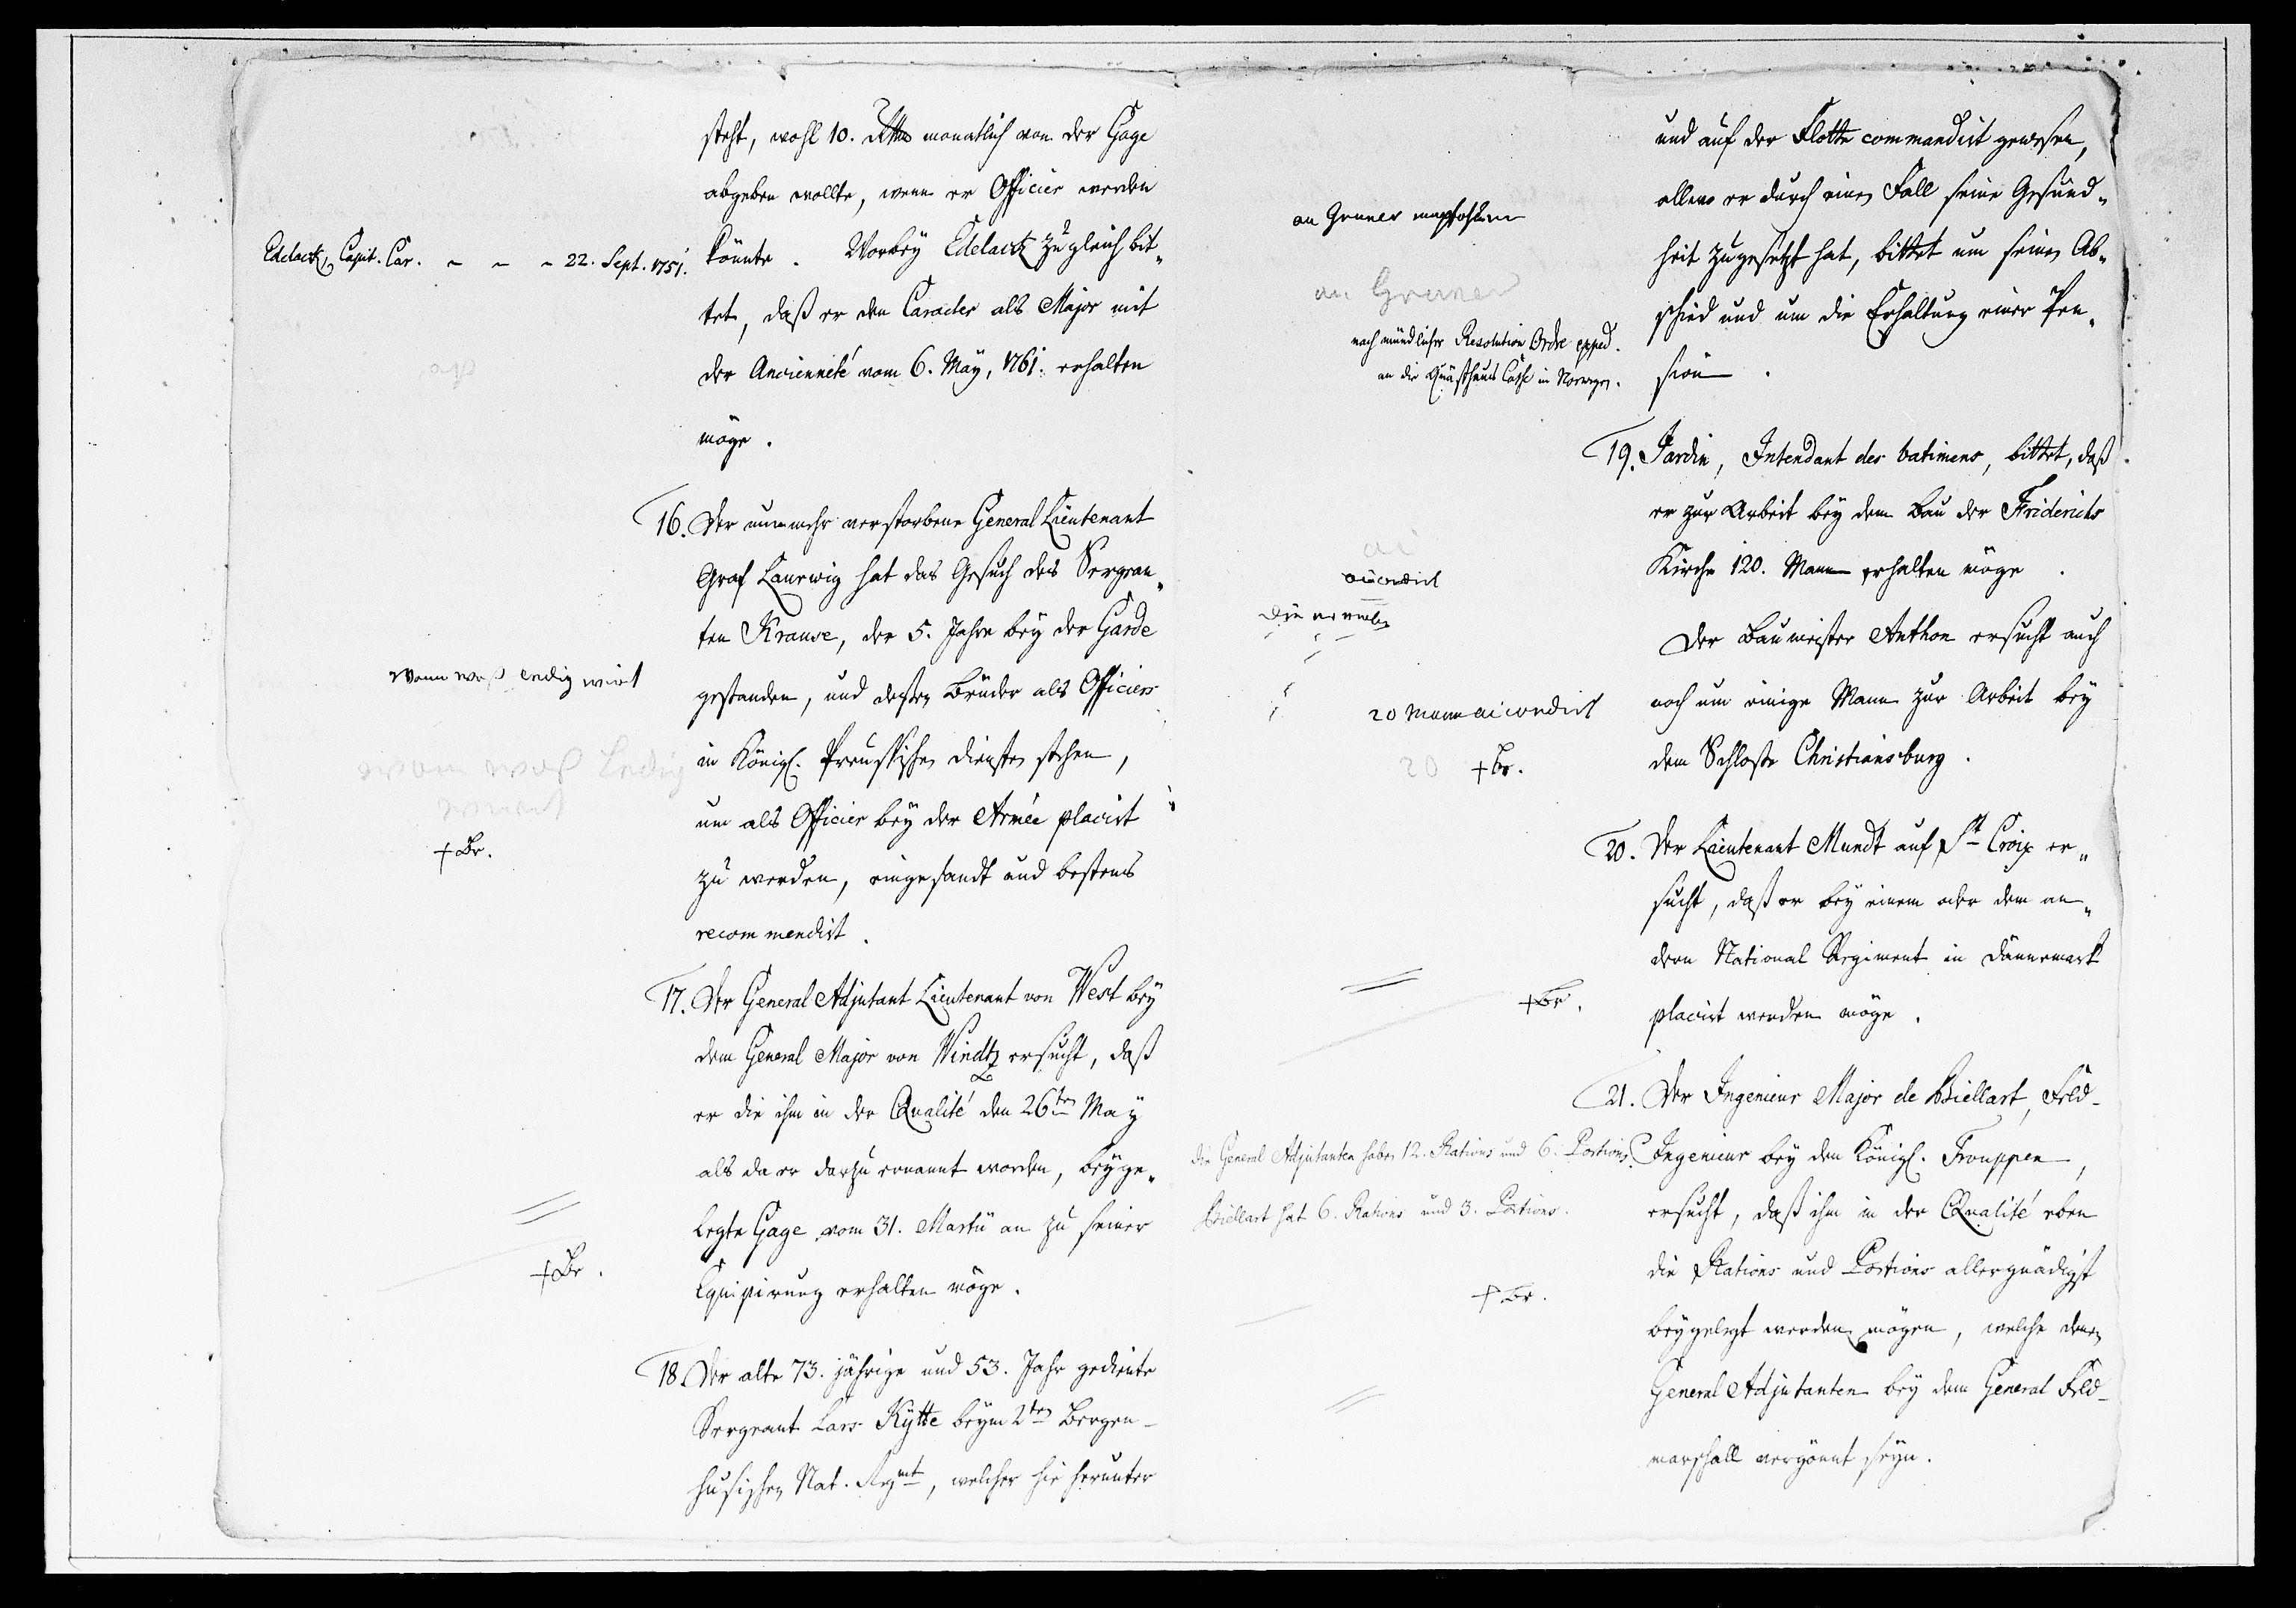 steht, wohl 10. Rthlr monatlich von der Gage
abgeben wollte, wenn er Officier werden
könnte. Worbey Edelack zugleich bit„
tet, daß er den Caracter als Major mit
der Ancienneté vom 6. May, 1761. erhalten
möge.
Edelack, Capit. Car. - - - 22. Sept. 1751.
16. Der nunmehr verstorbene General Lieutenant
Graf Laurwig hat das Gesuch des Sergean„
ten Krause, der 5. Jahre bey der Garde
gestanden, und dessen Brüder als Officiers
in Königl. Preussischen Diensten stehen,
um als Officier bey der Armée placirt
zu werden, eingesandt und bestens
recommendirt.
wann waß ledig wirt
wann waß ledig
wirt
+ Br.
17. Der General Adjutant Lieutenant von West bey
dem General Major von Windtz ersucht, daß
er die ihm in der Qualité den 26ten May
als da er darzu ernannt worden, beyge„
legte Gage vom 31. Martii an zu seiner
Equipirung erhalten möge.
+ Br.
18. Der alte 73. jährige und 53. Jahr gediente
Sergeant Lars Kytte beym 2ten Bergen-
husischen Nat. Regmt, welcher hie herunter
und auf der Flotte commandirt gewesen,
allwo er durch einen Fall seine Gesund„
heit zugesetzt hat, bittet um seinen Ab„
schied und um die Erhaltung einer Pen„
sion.
an Gruner
an Gruner
nach mündlicher Resolution Ordre exped.
an die Quästhaus Casse in Norwegen.
19. Jardin, Intendant des batimens, bittet, daß
er zur Arbeit bey dem Bau der Friderichs
Kirche 120. Mann erhalten möge.
Der Baumeister Anthon ersucht auch
noch um einige Mann zur Arbeit bey
dem Schlosse Christiansburg.
accordirt
20 Mann accordirt
20
+ Br.
20. Der Lieutenant Mundt auf St Croix er„
sucht, daß er bey einem oder dem an„
dern National Regiment in Dännemark
placirt werden möge.
+ Br.
21. Der Ingenieur Major de Biellart, Feld-
Ingenieur bey den Königl. Trouppen,
ersucht, daß ihm in der Qualité eben
die Rations und Portions allergnädigst
beygelegt werden mögen, welche denen
General Adjutanten bey dem General Feld-
marschall vergönnt seyn.
die General Adjutanten haben 12. Rations und 6. Portions.
Biellart hat 6. Rations und 3. Portions.
+ Br.